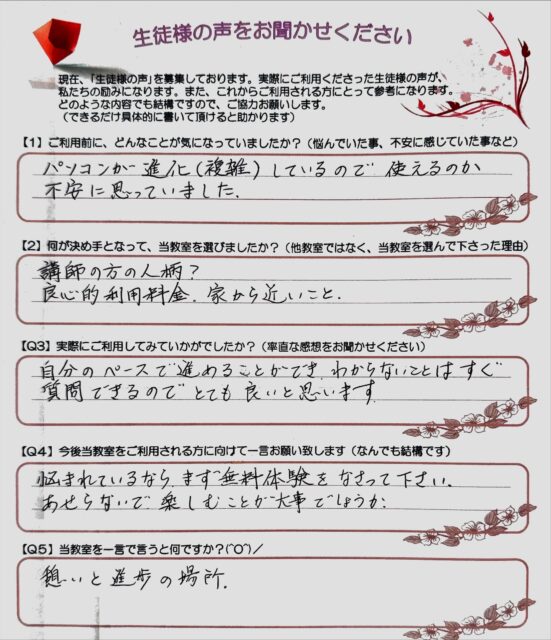 生徒様の声をお聞かせください
現在、「生徒様の声」を募集しております。実際にご利用くださった生徒様の声が、
私たちの励みになります。また、これからご利用される方にとって参考になります。
どのような内容でも結構ですので、ご協力お願いします。
（できるだけ具体的に書いて頂けると助かります）
【1】ご利用前に、どんなことが気になっていましたか？（悩んでいた事、不安に感じていた事など）
パソコンが進化(複雑)しているので使えるのか
不安に思っていました.
【2】何が決め手となって、当教室を選びましたか？（他教室ではなく、当教室を選んで下さった理由）
講師の方の人柄?
良心的利用料金. 家から近いこと.
【Q3】実際にご利用してみていかがでしたか？（率直な感想をお聞かせください）
自分のペースで進めることができ. わからないことはすぐ
質問できるのでとても良いと思います.
【Q4】今後当教室をご利用される方に向けて一言お願い致します（なんでも結構です）
悩まれているなら. まず無料体験をなさって下さい.
あせらないで楽しむことが大事でしょうか.
【Q5】当教室を一言で言うと何ですか？(^O^)／
憩いと進歩の場所.